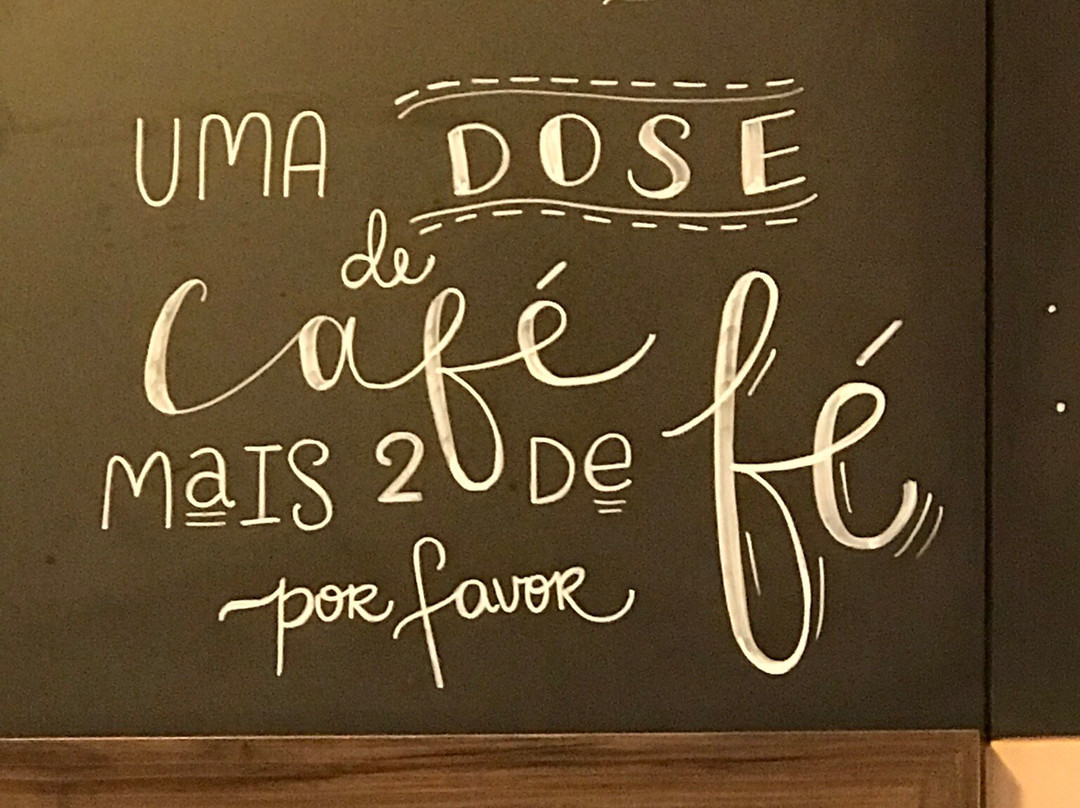 UMA DOSE
de
Café
MaIS 2 De fé
por favor